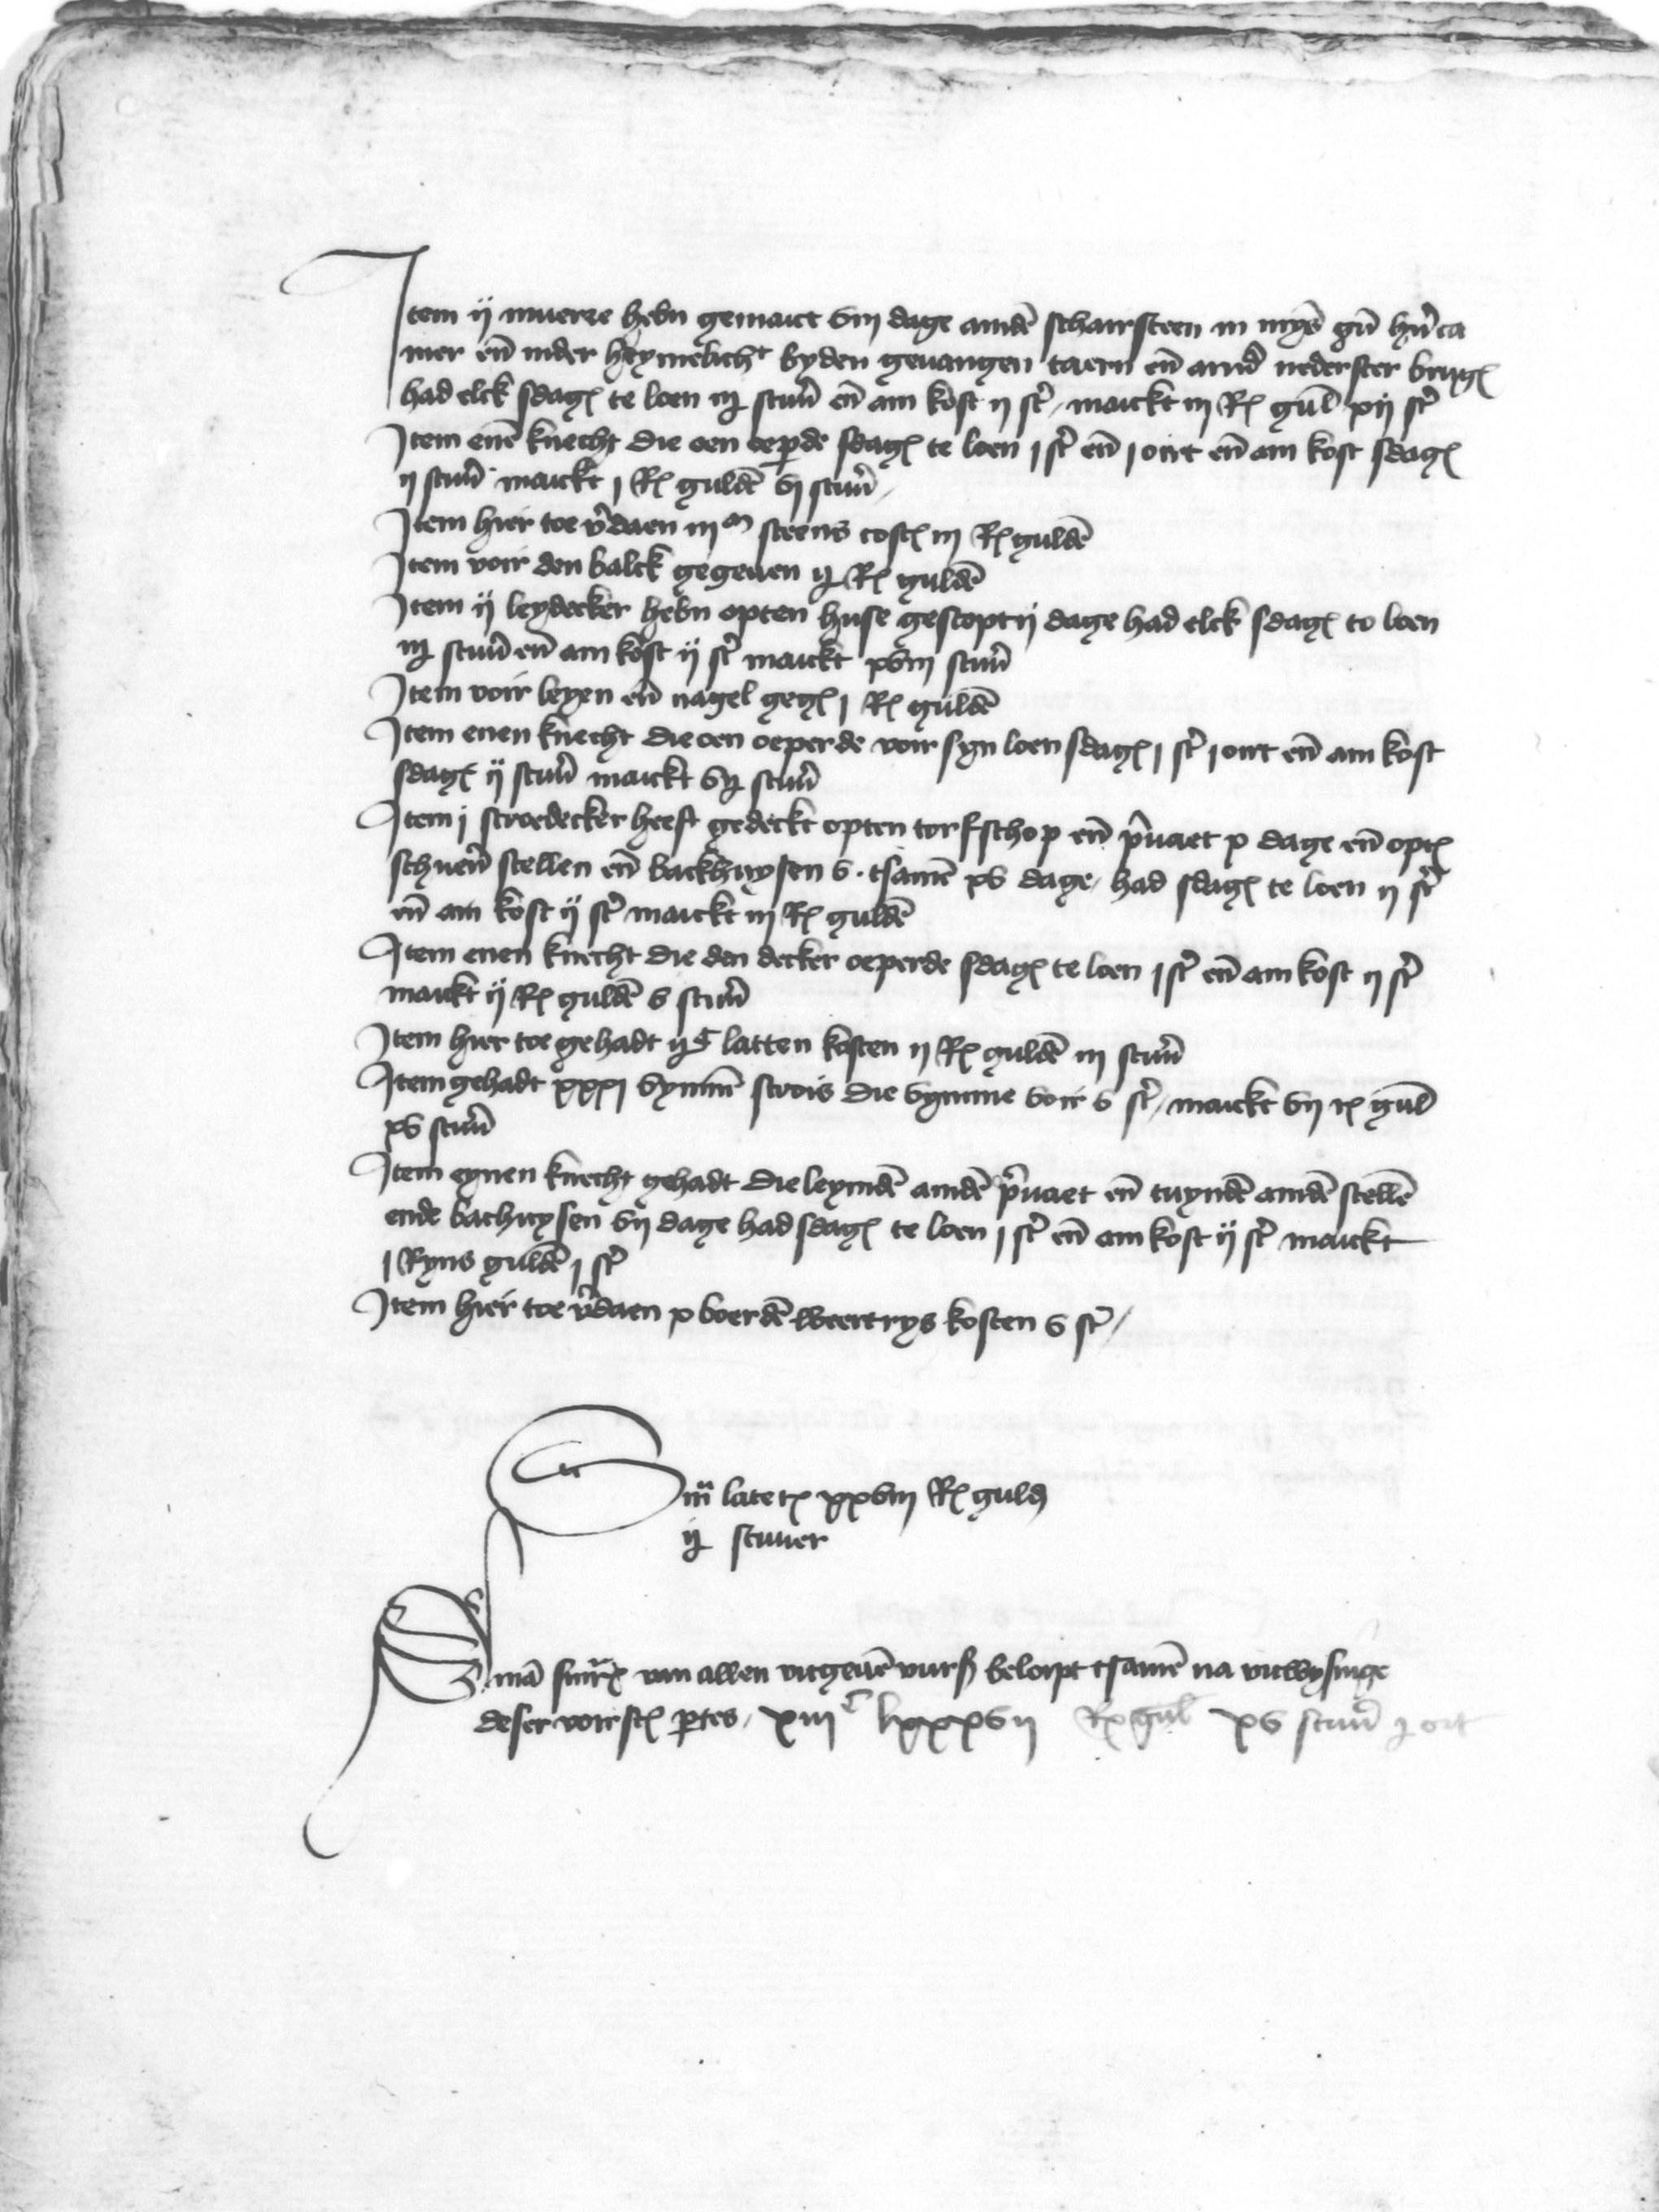 Item ij muerre hebn gemaict viij dage anidē schairsteen in mÿs gn̄ hr̄n ca
mer en̄ inder heymelicht byden geuangen taern en̄ and̄ nederster brugx
had elck sdagx te loen iij stuū en̄ am kost ij st̄ / maickt iij Rx gul̄ xij st̄
Item enē knecht die oen oeperde sdagx te loen j st̄ en̄ j oirt en̄ am kost sdagx
ij stuū maickt j Rx guldē vj stuū /
Item hier toe v̄daen iij m steens costx iij Rx guldē
Item voir den balck gegeuen ij Rx guldē
Item ij leydecker hebn opten huse gestopt ij dage had elck sdagx to loen
iij stuū en̄ am kost ij st̄ maickt xviij stuū
Item voir leyen en̄ nagel gegx j Rx guldē
Item enen knecht die oen oeperde voir syn loen sdagx j st̄ j oirt en̄ am kost
sdagx ij stuū maickt vij stuū
Item j stroedecker heeft gedeckt opten torfschop en̄ p̄uaet x dage en̄ optx
schuern̄ stellen en̄ backhuysen v . tsamē xv dage / had sdagx te loen ij st̄
en̄ am kost ij st̄ maickt iij Rx guldē
Item enen knecht die den decker oeperde sdagx te loen j st̄ en̄ am kost ij st̄
maickt ij Rx guldē v stuū
Item hier toe gehadt ij c latten kosten ij Rx guldē iij stuū
Item gehadt xxxj vymm̄ strois die vymme voir v st̄ / maickt vij rx gul̄
xv stuū
Item eynen knecht gehadt die leymdē anidē p̄uaet en̄ tuyndē anidē stellē
ende bachuysen vij dage had sdagx te loen j st̄ en̄ am kost ij st̄ maickt
j Ryns guldē j st̄
Item hier toe v̄daen x boerdē weertrys kosten v st̄ /
Sm̄ laterx xxviij Rx guld
ij stuuer
Sūma sum̄rx van allen vitgeuē vurss beloipt tsamē na vitwysinge
deser voirscx p̄tes / xiiij c lxxxvij Rx gul̄ xv stuū j ort